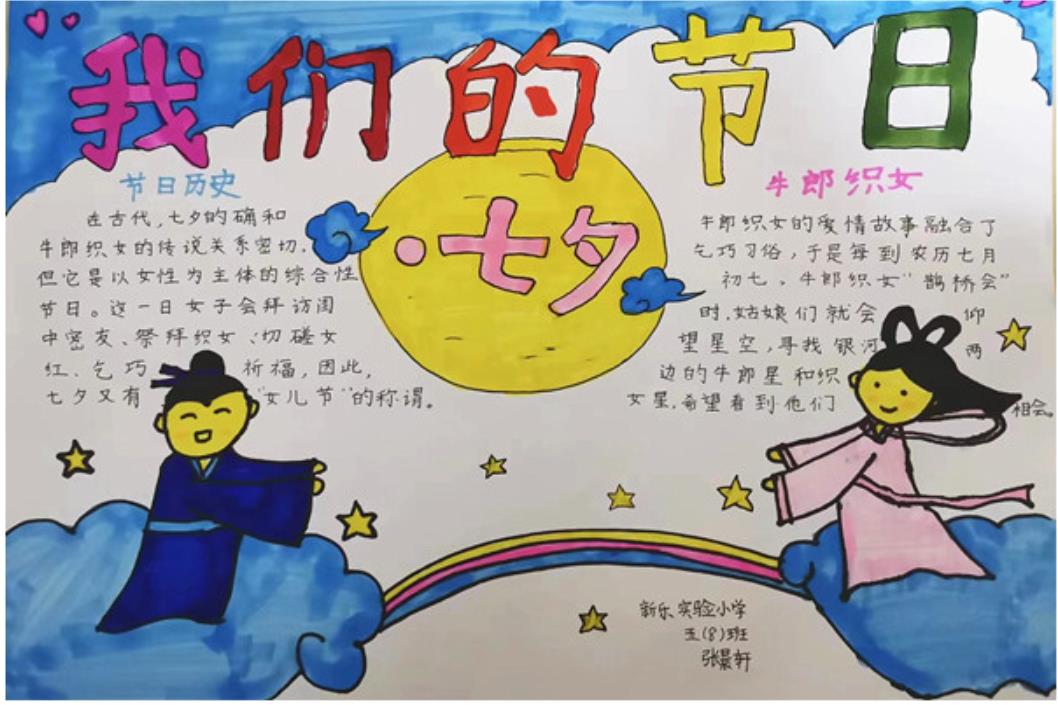 我们的节日
·七夕
节日历史
在古代,七夕的确和
牛郎织女的传说关系密切.
但它是以女性为主体的综合性
节日。这一日女子会拜访闺
中密友、祭拜织女、切磋女
红、乞巧祈福,因此,
七夕又有“女儿节”的称谓。
牛郎织女
牛郎织女的爱情故事融合了
乞巧习俗,于是每到农历七月
初七、牛郎织女“鹊桥会”
时.姑娘们就会仰
望星空,寻找银河两
边的牛郎星和织
女星.希望看到他们相会。
新乐实验小学
五(8)班
张景轩